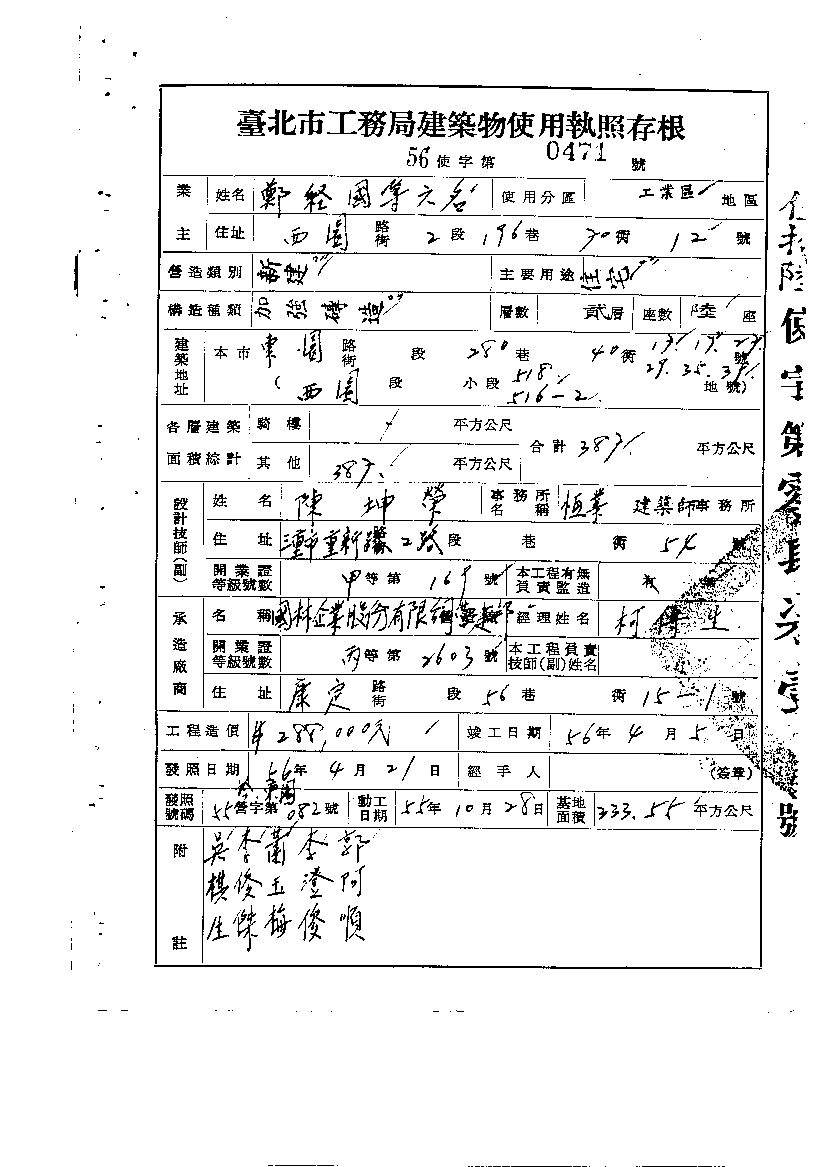 臺北市工務局建築物使用執照存根
56使字第 0471 號
業主 姓名 鄭經國等六名 使用分區 工業區 地區
住址 西園 路街 2段 196巷 70衖 12號
營造類別 新建 主要用途 住宅
構造種類 加強磚造 層數 貳層 座數 陸座
建築地址 本市 東園 路街 段 280巷 40衖 17. 19. 27. 號
29. 35. 37.
(西園 段 小段 518. 516-2. 地號)
各層建築面積綜計 騎樓 平方公尺 合計 387. 平方公尺
其他 387. 平方公尺
設計技師(副) 姓名 陳坤榮 事務所名稱 恒業 建築師事務所
住址 三重市重新路二路 段 巷 衖 54 號
開業證等級號數 甲等第 169 號 本工程有無負責監造 有
承造廠商 名稱 國林企業股份有限 經理姓名 柯 生
開業證等級號數 丙等第 2603 號 本工程負責技師(副)姓名
住址 康定 路街 段 56巷 衖 15-1 號
工程造價 288,000元 竣工日期 56年 4月 5日
發照日期 56年 4月 21日 經手人 (簽章)
發照號碼 55營字第 082號 動工日期 55年 10月 28日 基地面積 233.55 平方公尺
附註
吳李蕭李郭
棋俊玉澄阿
生傑梅俊順